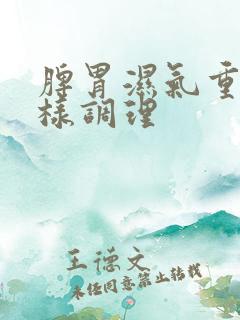 脾胃濕氣重
樣調理
王德文
未经同意禁止转载